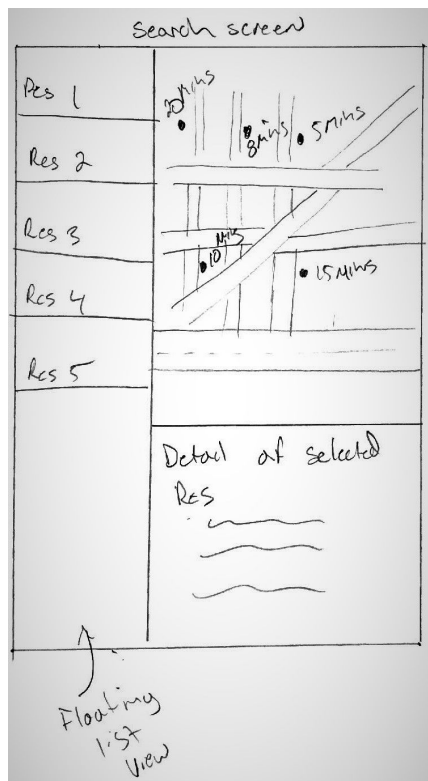 Search screen
Res 1
Res 2
Res 3
Res 4
Res 5
20 Mins
8 Mins
5 Mins
10 Mins
15 Mins
Detail of selected
Res
Floating
list
View